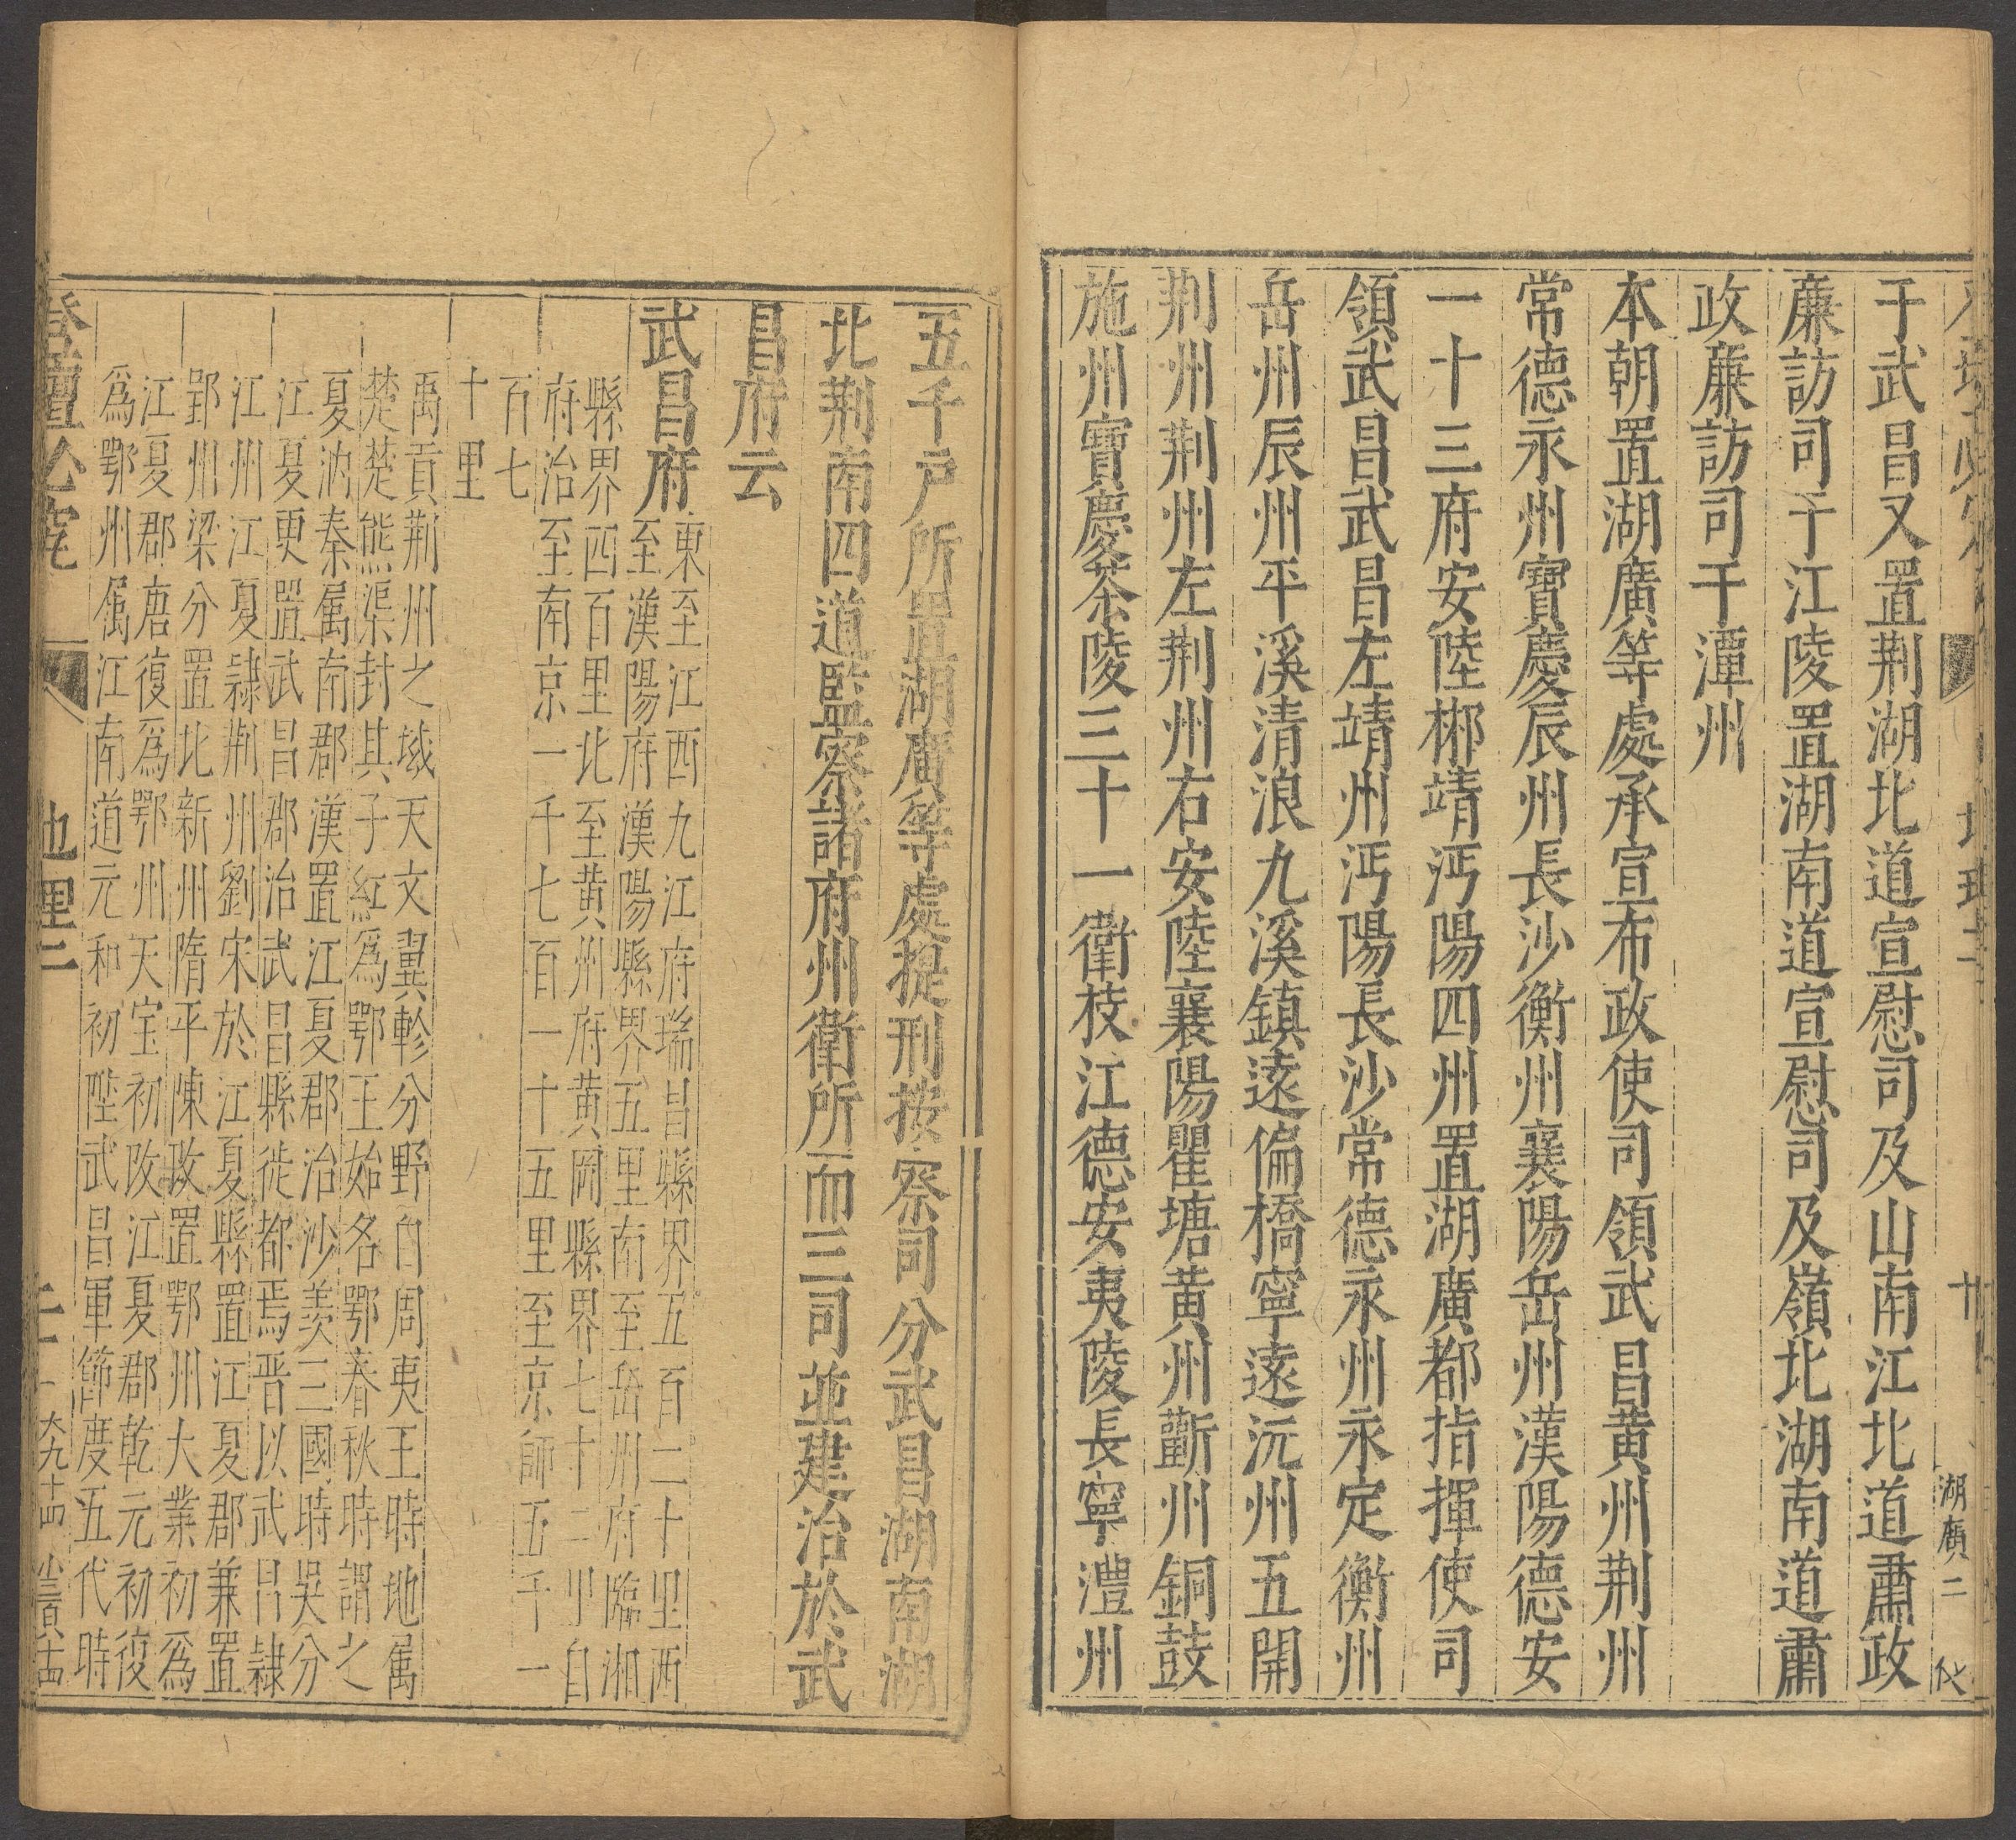 地理二 卄 湖廣二
于武昌又置荆湖北道宣慰司及山南江北道肅政
廉訪司于江陵置湖南道宣慰司及嶺北湖南道肅
政廉訪司于潭州
本朝置湖廣等處承宣布政使司領武昌黄州荆州
常德永州寶慶辰州長沙衡州襄陽岳州漢陽德安
一十三府安陸郴靖沔陽四州置湖廣都指揮使司
領武昌武昌左靖州沔陽長沙常德永州永定衡州
岳州辰州平溪清浪九溪鎮逺偏橋寧逺沅州五開
荆州荆州左荆州右安陸襄陽瞿塘黄州蘄州銅鼓
施州寶慶茶陵三十一衛枝江德安夷陵長寧澧州
五千户所置湖廣等處提刑按察司分武昌湖南湖
北荆南四道監察諸府州衛所而三司並建治於武
昌府云
武昌府
東至江西九江府瑞昌縣界五百二十里西
至漢陽府漢陽縣界五里南至岳州府臨湘
縣界四百里北至黄州府黄岡縣界七十二里自
府治至南京一千七百一十五里至京師五千一
百七
十里
禹貢荆州之域天文翼軫分野自周夷王時地属
楚楚熊渠封其子紅爲鄂王始名鄂春秋時謂之
夏汭秦属南郡漢置江夏郡治沙羡三國時吳分
江夏更置武昌郡治武昌縣徙都焉晋以武昌隷
江州江夏隷荆州劉宋於江夏縣置江夏郡兼置
郢州梁分置北新州隋平陳改置鄂州大業初爲
江夏郡唐復爲鄂州天宝初改江夏郡乾元初復
爲鄂州属江南道元和初陞武昌軍節度五代時
登壇必究 地理二 大九十四